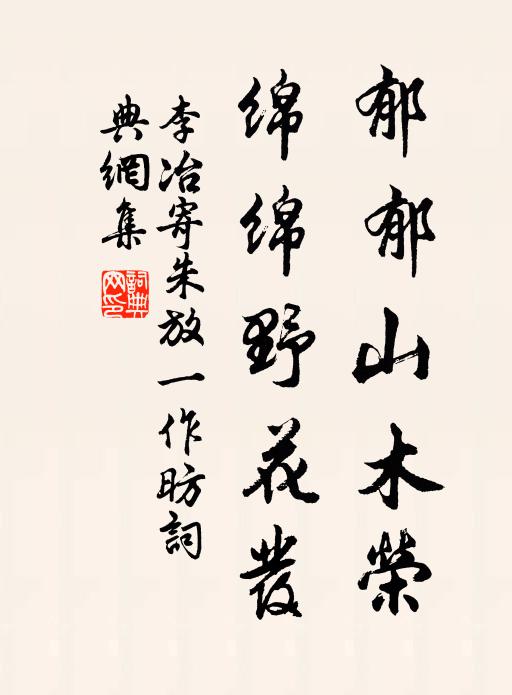 郁郁山木榮
绵绵野花發
李冶寄朱放一作昉詞
典網集
詞典网印